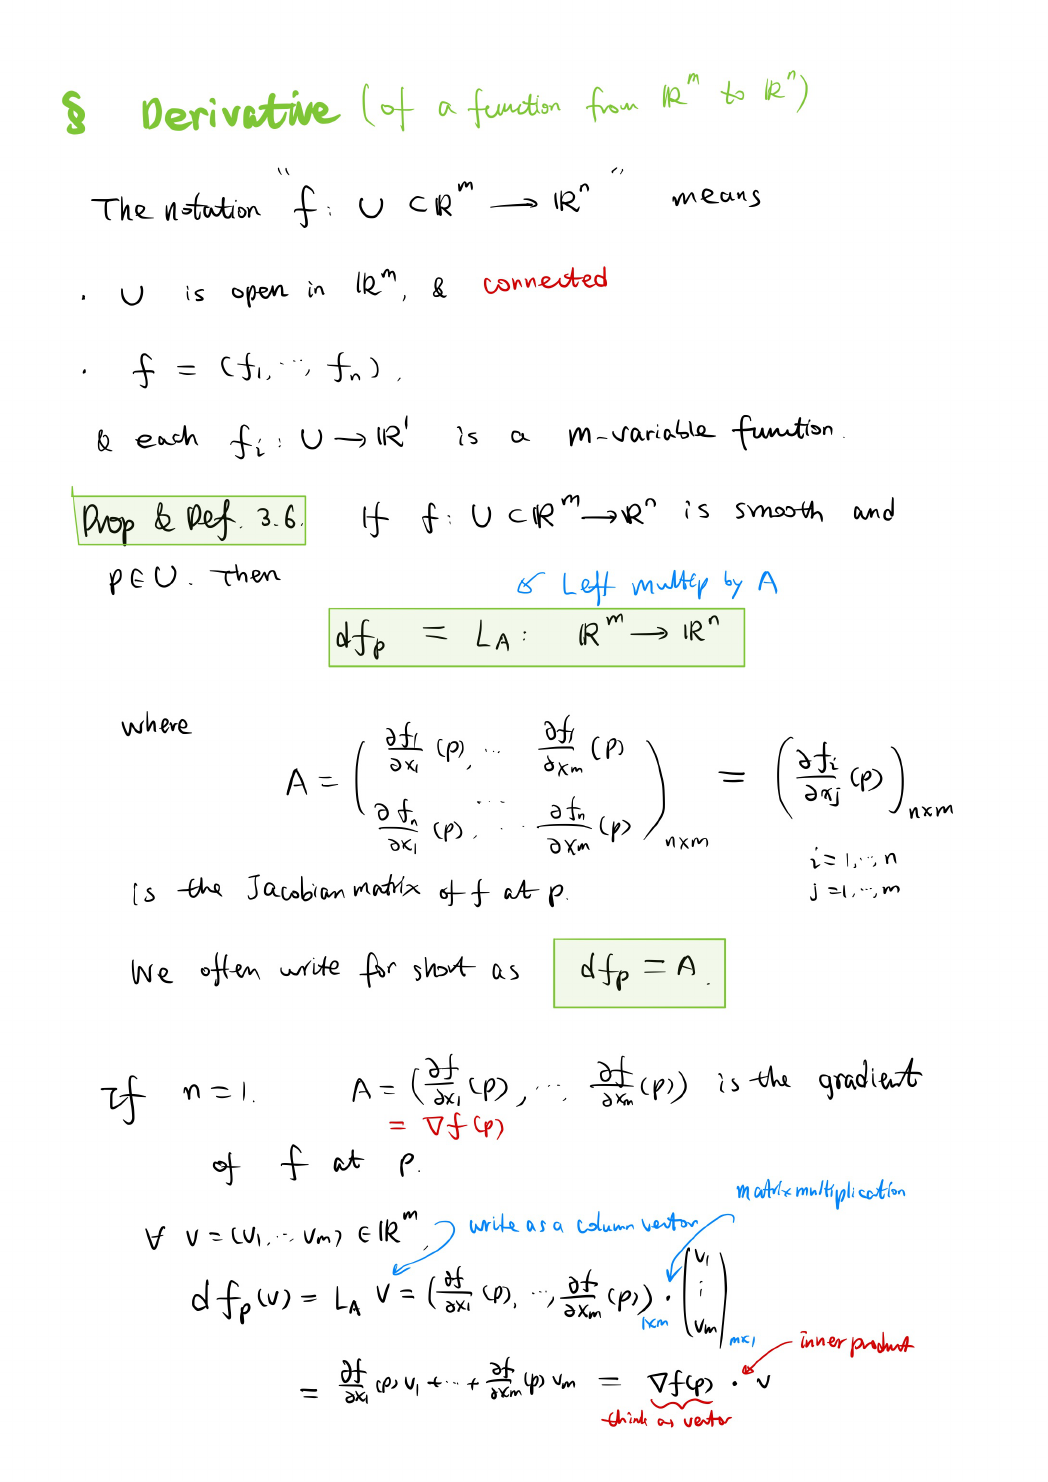 § Derivative (of a function from ℝᵐ to ℝⁿ)
The notation "f: U ⊂ ℝᵐ ⟶ ℝⁿ" means
· U is open in ℝᵐ, & connected
· f = (f₁, ⋯, fₙ).
& each fᵢ: U → ℝ¹ is a m-variable function.
Prop & Def. 3.6. If f: U ⊂ ℝᵐ → ℝⁿ is smooth and
p ∈ U. Then
↙ Left multip by A
dfₚ = L_A : ℝᵐ → ℝⁿ
where
A = ( ∂f₁/∂x₁ (p), ⋯ ∂f₁/∂xₘ (p)
∂fₙ/∂x₁ (p), ⋯ ∂fₙ/∂xₘ (p) )ₙₓₘ = ( ∂fᵢ/∂xⱼ (p) )ₙₓₘ
i = 1, ⋯, n
j = 1, ⋯, m
is the Jacobian matrix of f at p.
We often write for short as dfₚ = A.
If n = 1. A = (∂f/∂x₁ (p), ⋯, ∂f/∂xₘ (p)) is the gradient
= ∇f(p)
of f at p.
matrix multiplication
∀ v = (v₁, ⋯ vₘ) ∈ ℝᵐ, write as a column vector
dfₚ(v) = L_A v = (∂f/∂x₁ (p), ⋯, ∂f/∂xₘ (p))₁ₓₘ · (v₁ ⋮ vₘ)ₘₓ₁
inner product
= ∂f/∂x₁ (p) v₁ + ⋯ + ∂f/∂xₘ (p) vₘ = ∇f(p) · v
think as vector